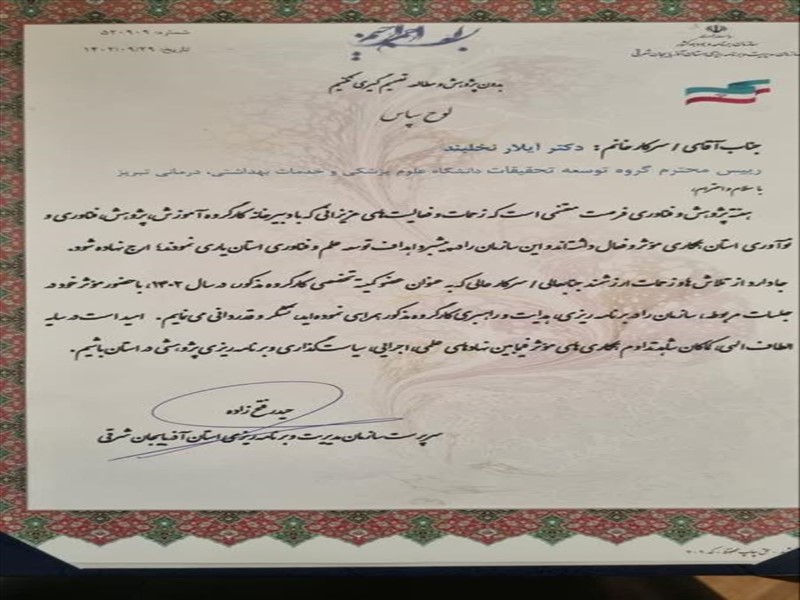 بسم الله الرحمن الرحیم
شماره: ۵۲۰۹۰۹
تاریخ: ۱۴۰۲/۰۹/۲۹
سازمان مدیریت و برنامه ریزی استان آذربایجان شرقی
بدون پژوهش و مطالعه تصمیم گیری نکنیم
لوح سپاس
جناب آقای / سرکار خانم: دکتر آیلار نخلبند
رییس محترم گروه توسعه تحقیقات دانشگاه علوم پزشکی و خدمات بهداشتی، درمانی تبریز
با سلام و احترام؛
هفته پژوهش و فناوری فرصت مغتنمی است که زحمات و فعالیت‌های عزیزانی که با دبیرخانه کارگروه آموزش، پژوهش، فناوری و
نوآوری استان همکاری مؤثر و فعال داشته‌اند و این سازمان را در پیشبرد اهداف توسعه علم و فناوری استان یاری نمودند؛ ارج نهاده شود.
جا دارد از تلاش‌ها و زحمات ارزشمند جنابعالی / سرکار عالی که به عنوان عضو کمیته تخصصی کارگروه مذکور، در سال ۱۴۰۲، با حضور مؤثر خود در
جلسات مربوطه، سازمان را در برنامه ریزی، هدایت و راهبری کارگروه مذکور همراهی نموده اید، تشکر و قدردانی می نمایم. امید است در سایه
الطاف الهی، کماکان شاهد تداوم همکاری های مؤثر فیمابین نهادهای علمی، اجرایی، سیاست گذاری و برنامه ریزی پژوهشی در استان باشیم.
حیدر فتح زاده
سرپرست سازمان مدیریت و برنامه ریزی استان آذربایجان شرقی